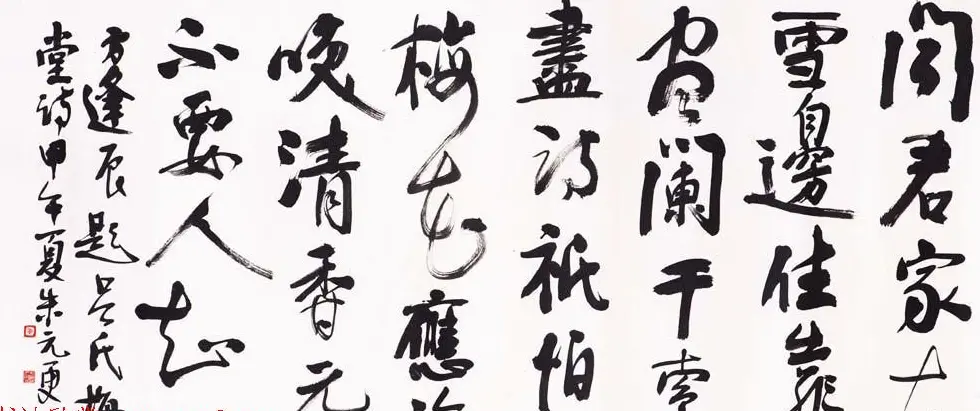 聞君家
雪邊住靠
闌干索
盡詩祇怕
梅花應
咲清香元
不要人知
方逢辰題吕氏梅
堂詩甲午夏朱元更